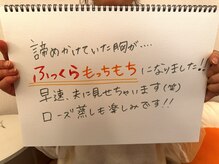 諦めかけていた胸が....
ふっくらもっちもちになりました!!
早速、夫に見せちゃいます(笑)
ローズ蒸しも楽しみです!!